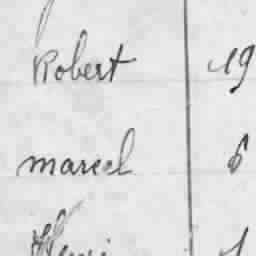 Robert 19
marcel 6
Henri